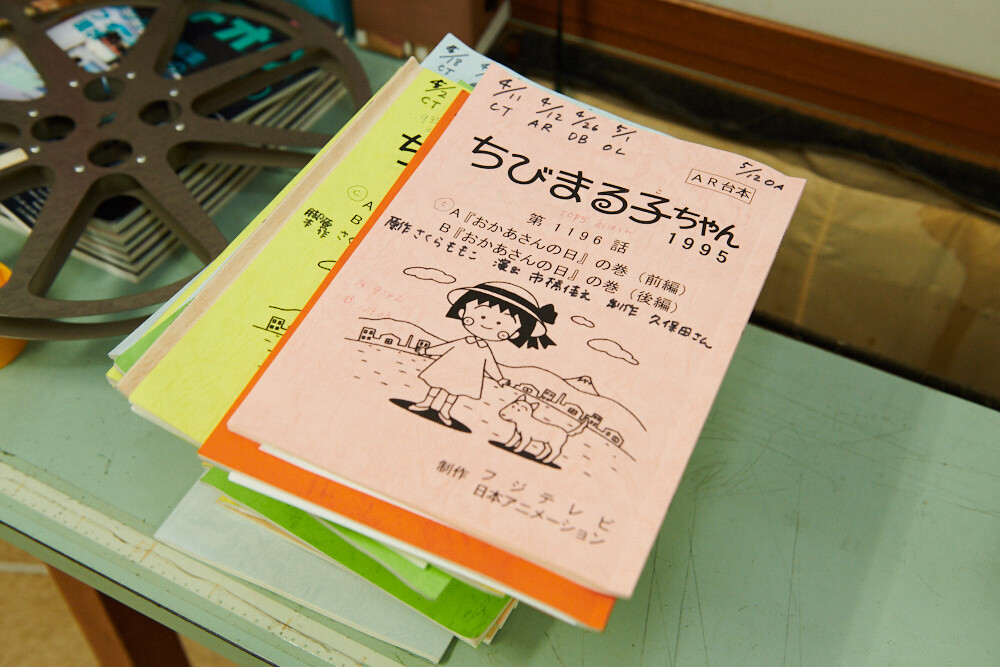 4/11 4/12 4/26 5/1 5/12 OA
CT AR DB OL
AR台本
ちびまる子ちゃん
1995
第1196話
Ⓒ A『おかあさんの日』の巻（前編）
B『おかあさんの日』の巻（後編）
原作 さくらももこ 演出 市橋佳之 制作 久保田さん
制作 フジテレビ
日本アニメーション
5/13
CT
5/2
CT
ち
Ⓒ A
B
脚本